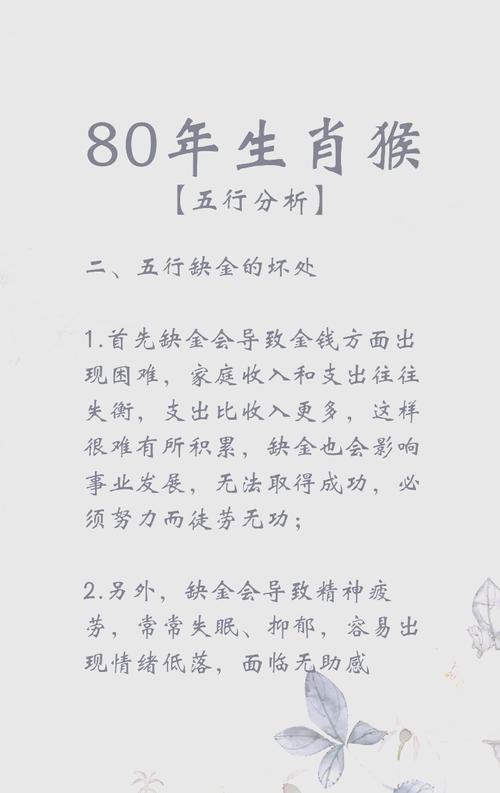 80年生肖猴
【五行分析】
二、五行缺金的坏处
1.首先缺金会导致金钱方面出
现困难，家庭收入和支出往往
失衡，支出比收入更多，这样
很难有所积累，缺金也会影响
事业发展，无法取得成功，必
须努力而徒劳无功；
2.另外，缺金会导致精神疲
劳，常常失眠、抑郁，容易出
现情绪低落，面临无助感